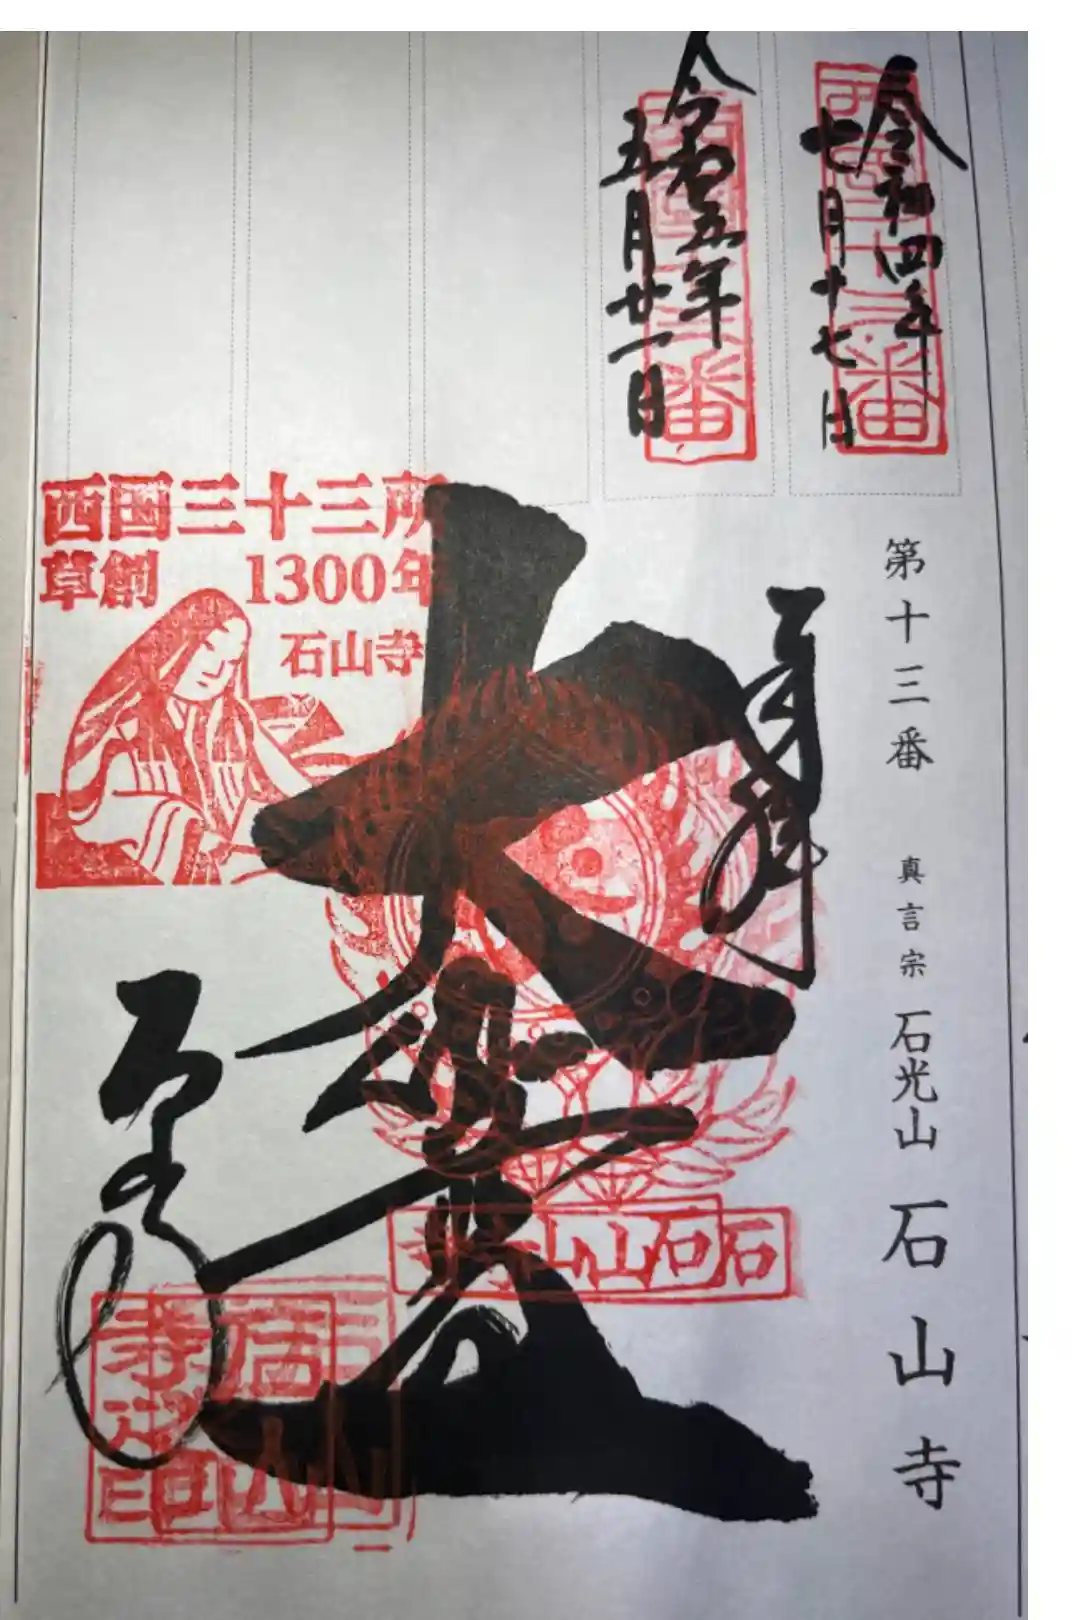 第十三番 真言宗 石光山 石山寺
令和四年
七月十七日
令和五年
五月廿一日
奉拝
大悲殿
石山寺
西国三十三所
草創 1300年
石山寺
石山寺
石山寺印